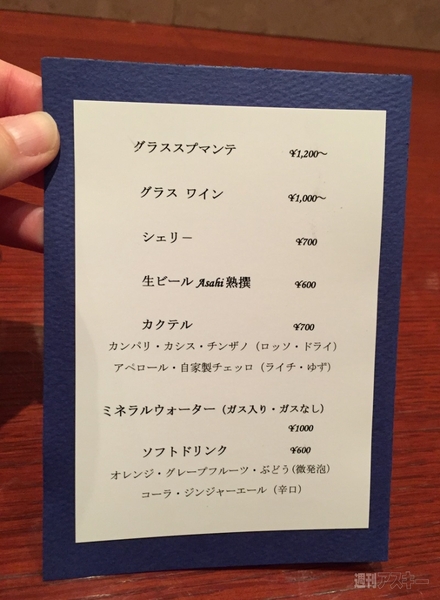 グラススプマンテ ¥1,200～
グラス ワイン ¥1,000～
シェリー ¥700
生ビール Asahi 熟撰 ¥600
カクテル ¥700
カンパリ・カシス・チンザノ（ロッソ・ドライ）
アペロール・自家製チェッロ（ライチ・ゆず）
ミネラルウォーター（ガス入り・ガスなし）
¥1000
ソフトドリンク ¥600
オレンジ・グレープフルーツ・ぶどう(微発泡)
コーラ・ジンジャーエール（辛口）
週刊アスキー